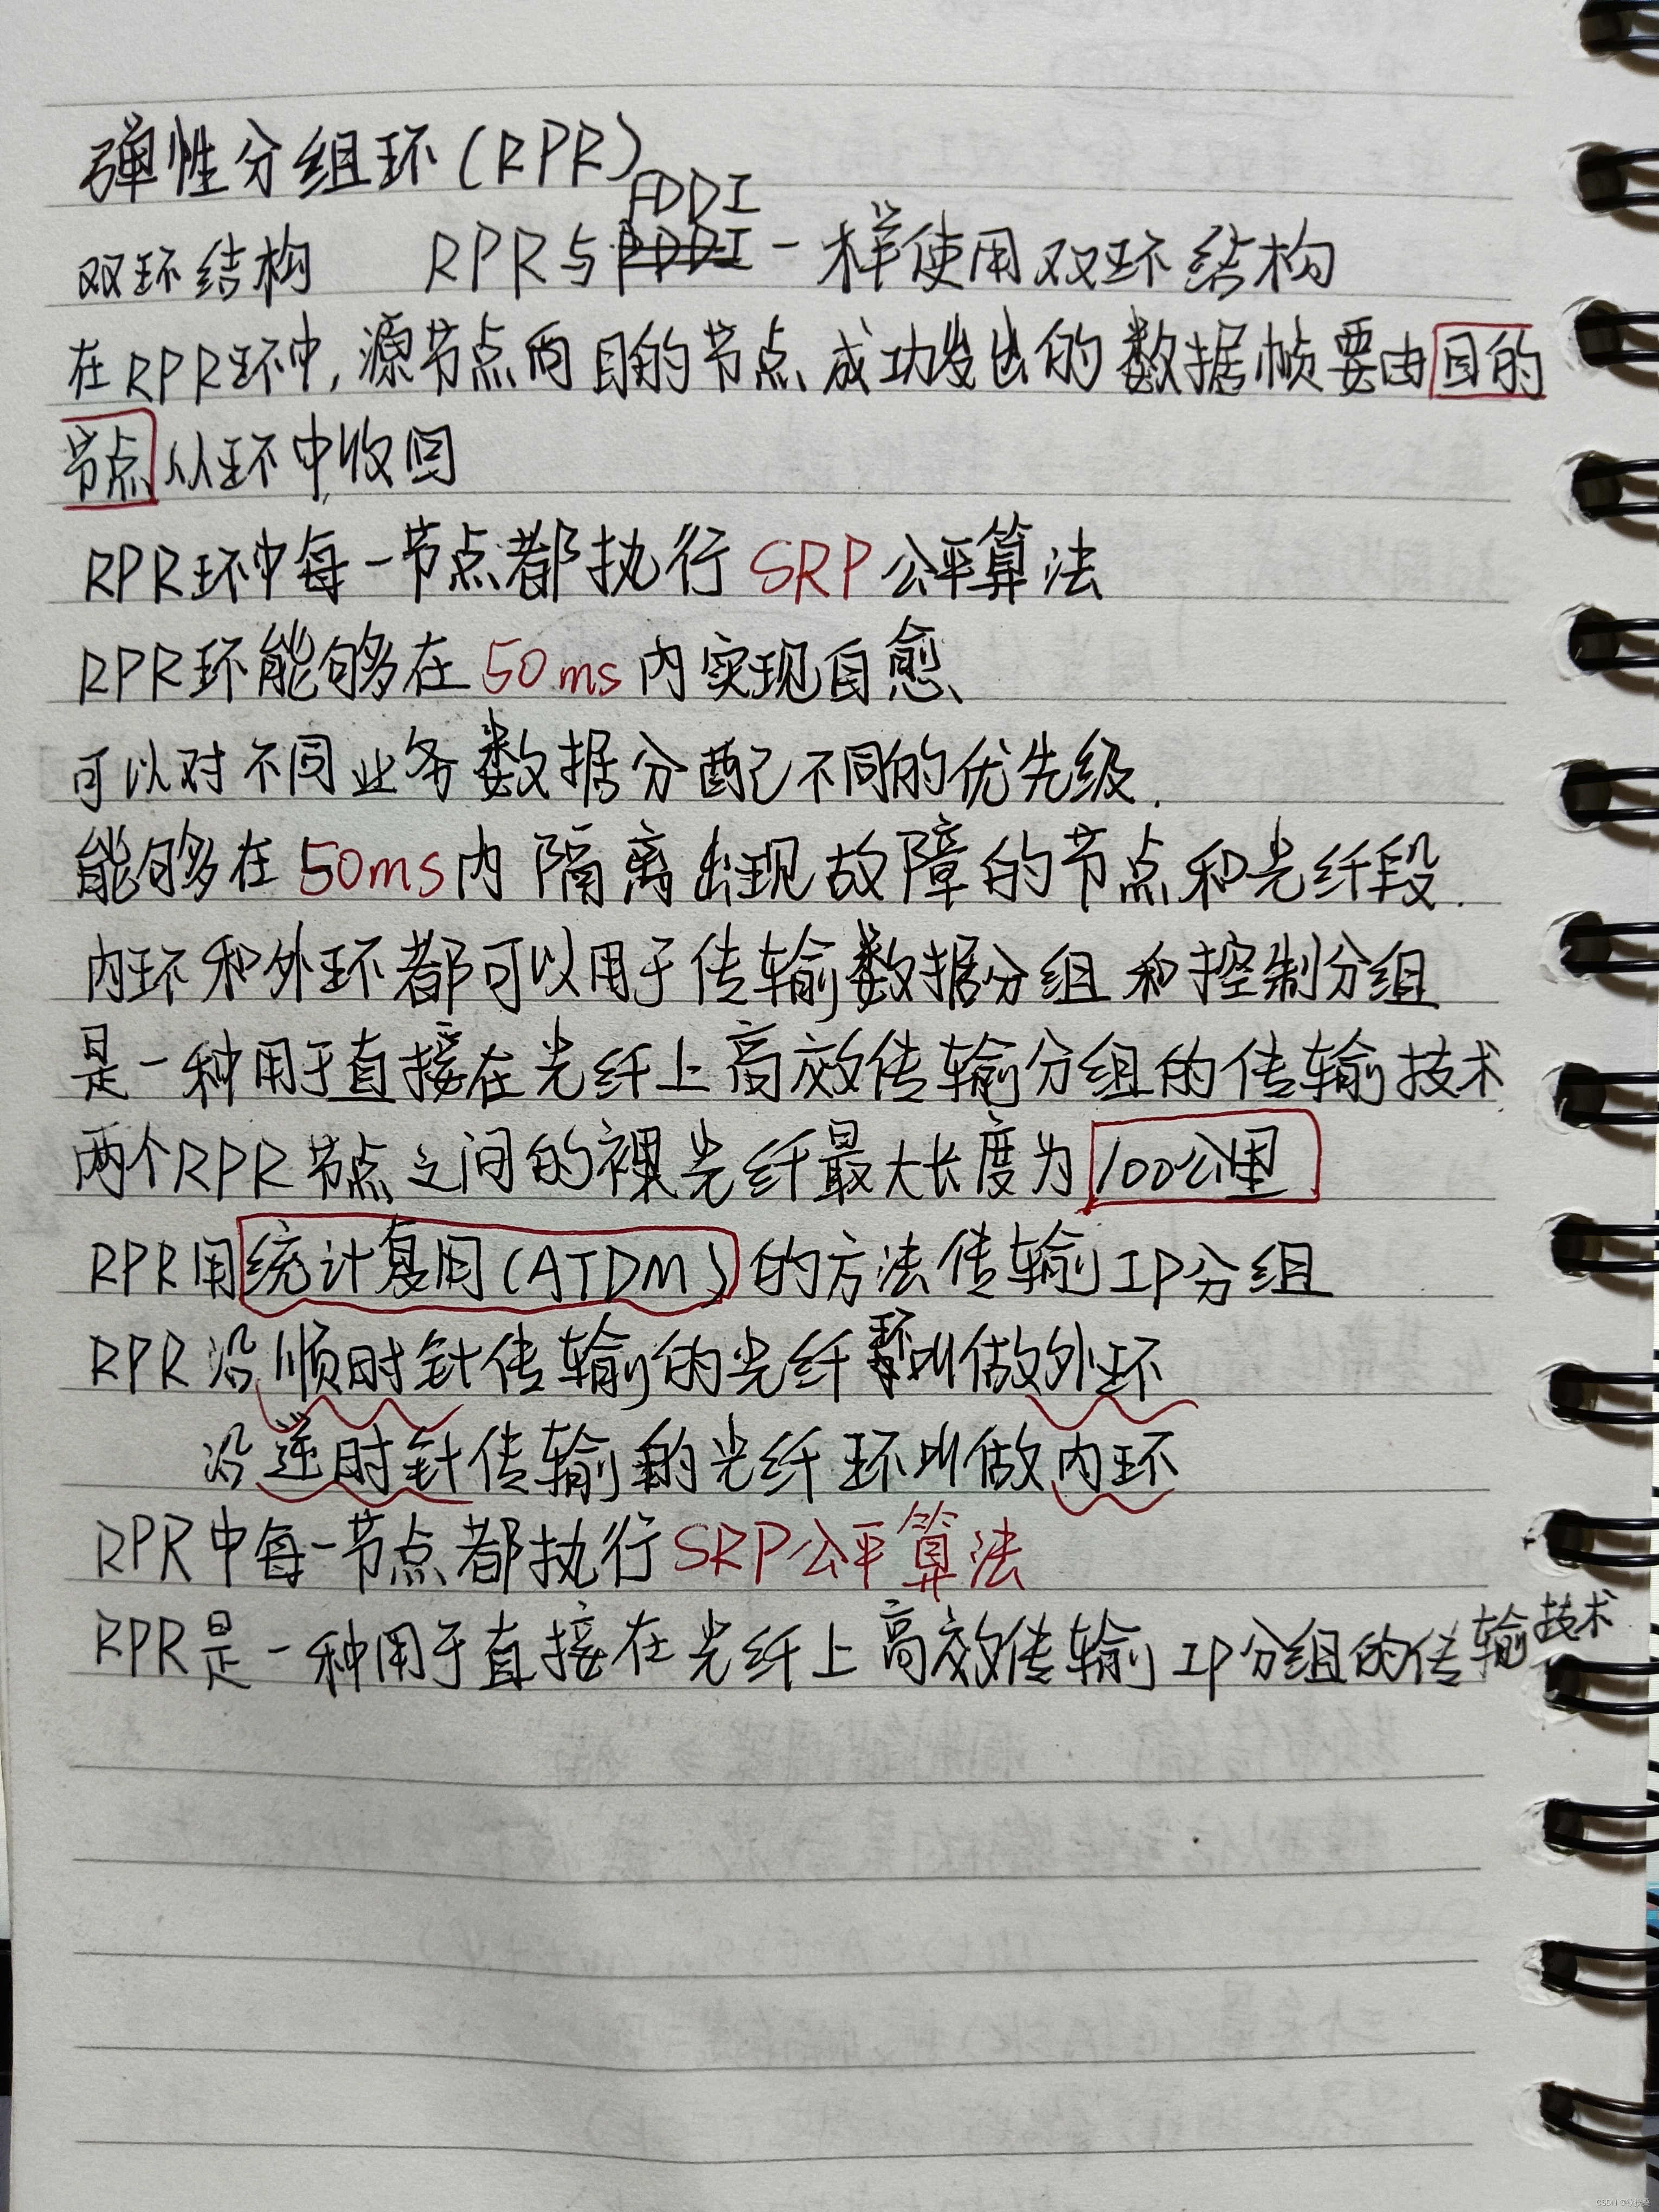 弹性分组环(RPR)
双环结构 RPR与FDDI一样使用双环结构
在RPR环中,源节点向目的节点成功发出的数据帧要由目的
节点从环中收回
RPR环中每一节点都执行SRP公平算法
RPR环能够在50ms内实现自愈
可以对不同业务数据分配不同的优先级.
能够在50ms内隔离出现故障的节点和光纤段.
内环和外环都可以用于传输数据分组和控制分组
是一种用于直接在光纤上高效传输分组的传输技术
两个RPR节点之间的裸光纤最大长度为100公里
RPR用统计复用(ATDM)的方法传输IP分组
RPR沿顺时针传输的光纤环叫做外环
沿逆时针传输的光纤环叫做内环
RPR中每一节点都执行SRP公平算法
RPR是一种用于直接在光纤上高效传输IP分组的传输技术